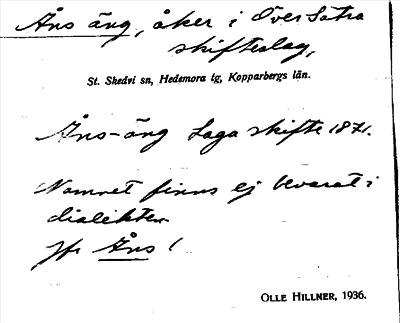 Åns äng, åker i Över Sätra
skifteslag,
St. Skedvi sn, Hedemora tg, Kopparbergs län.
Åns-äng Laga skifte 1871.
Namnet finns ej bevarat i
dialekten
Jfr Åns !
OLLE HILLNER, 1936.